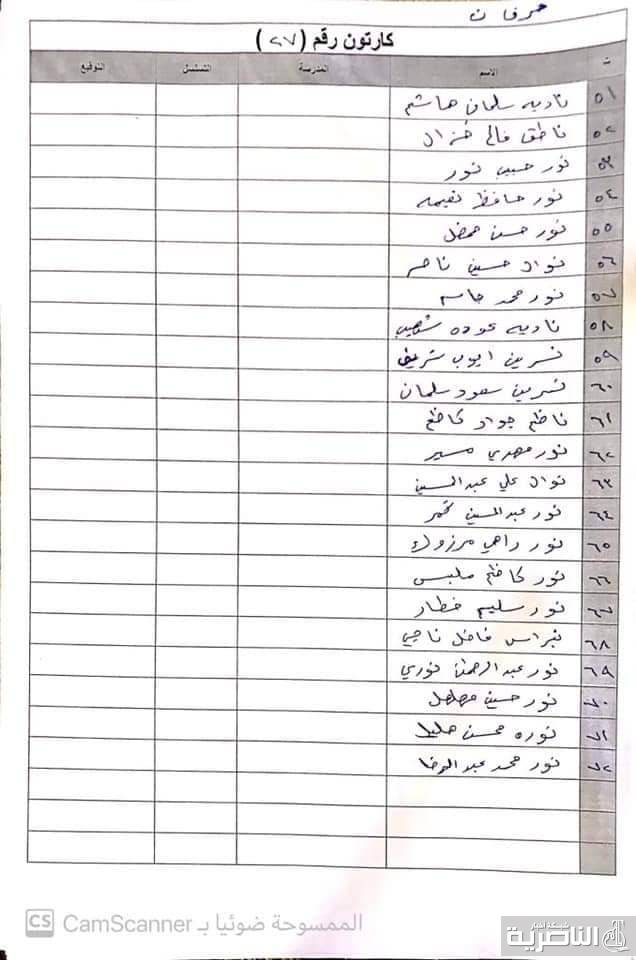 حرفان
كارتون رقم (٢٧)
ت الاسم المدرسة التسلسل التوقيع
٥١ ناديه سلمان هاشم
٥٢ ناطق فالح خزال
٥٣ نور حبيب نور
٥٤ نور حافظ نعيمه
٥٥ نور حسن
٥٦ نوال حسين ناصر
٥٧ نور محمد جاسم
٥٨ ناديه عوده شهيب
٥٩ نسرين ايوب شريف
٦٠ نسرين سعود سلمان
٦١ ناظم جواد كاظم
٦٢ نور مهدي مسير
٦٣ نوال علي عبد الحسين
٦٤ نور عبد الحسين
٦٥ نور راهي مرزوك
٦٦ نور كاظم ملبس
٦٧ نور سليم خطار
٦٨ نبراس فاضل ناجي
٦٩ نور عبد الرحمن نوري
٧٠ نور حسين مهلهل
٧١ نوره محسن
٧٢ نور محمد عبد الرضا
CS الممسوحة ضوئيا بـ CamScanner
شبكة اخبار الناصرية